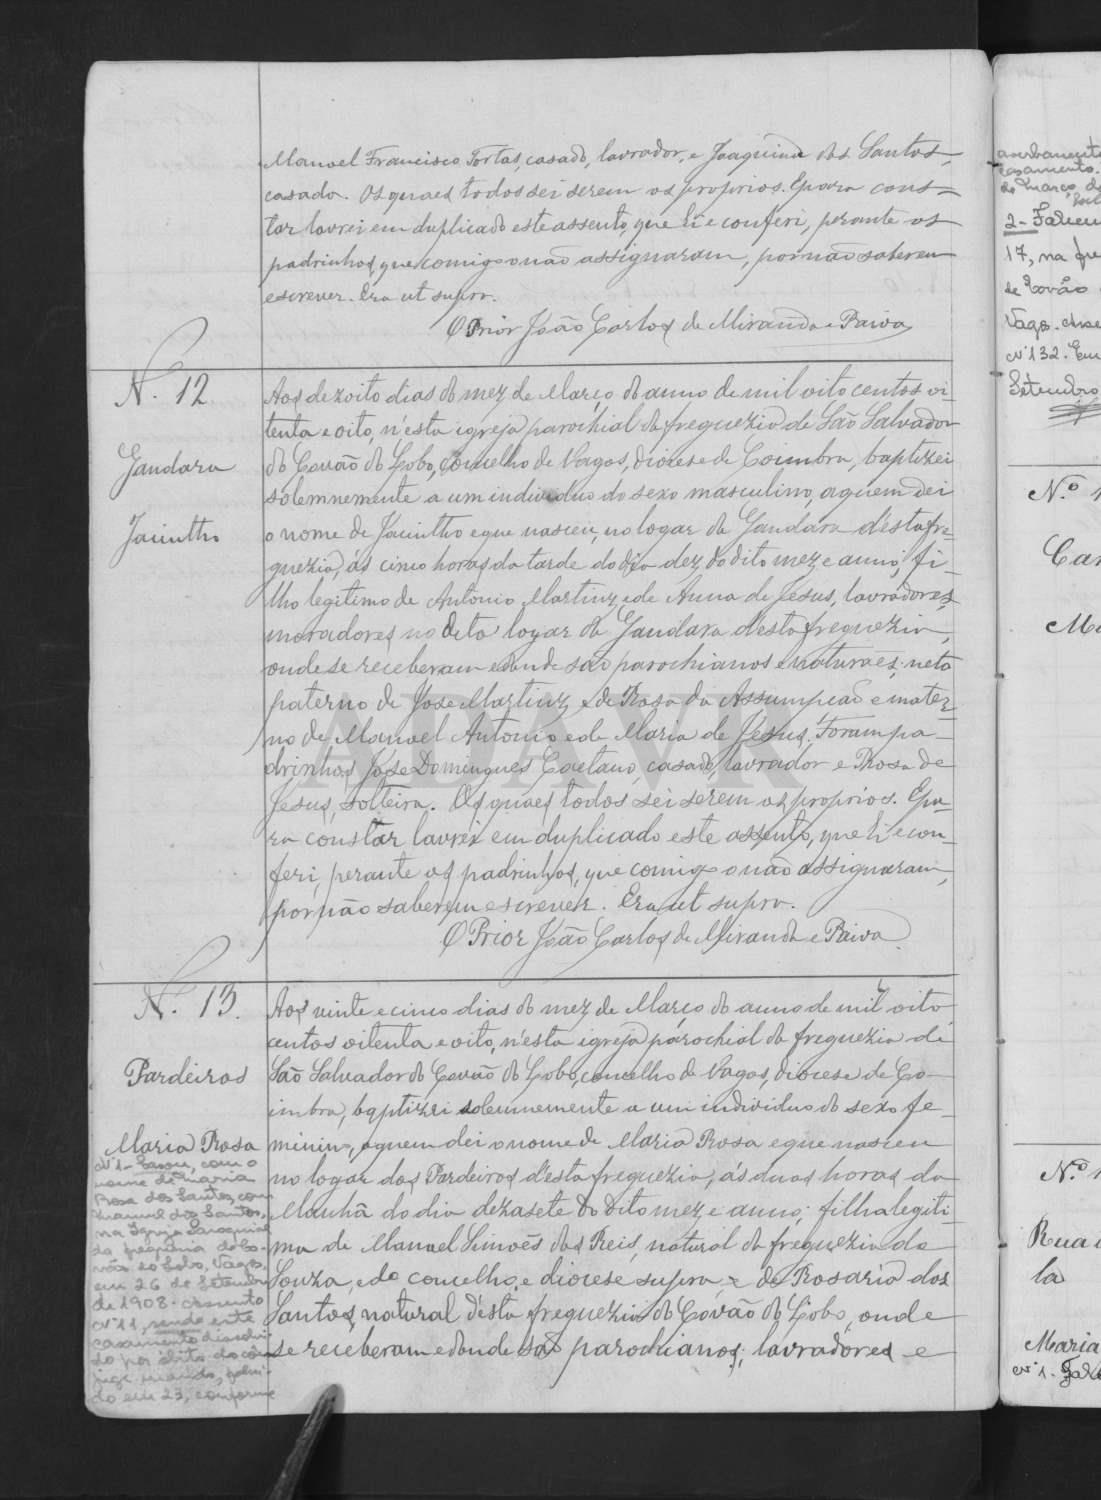 Manoel Francisco Tortas, casado, lavrador, e Joaquina dos Santos,
casada. Os quaes todos sei serem os proprios. E para cons=
tar lavrei em duplicado este assento, que li e conferi, perante os
padrinhos, que comigo o não assignaram, por não saberem
escrever. Era ut supra.
O Prior João Carlos de Miranda e Paiva
N. 12
Gandara
Jacintho
Aos dezoito dias do mez de Março do anno de mil oito centos oi-
tenta e oito, n'esta igreja parochial da freguezia de São Salvador
do Covão do Lobo, Concelho de Vagos, diocese de Coimbra, baptizei
solemnemente a um individuo do sexo masculino, a quem dei
o nome de Jacintho e que nasceu, no logar da Gandara d'esta fre-
guezia, ás cinco horas da tarde do dia dez do dito mez e anno; fi-
lho legitimo de Antonio Martins, e de Anna de Jesus, lavradores,
moradores no dito logar da Gandara d'esta freguezia,
onde se receberam e donde são parochianos e naturaes; neto
paterno de Jose Martins, e de Rosa da Assumpção e mater-
no de Manoel Antonio e de Maria de Jesus. Foram pa-
drinhos Jose Domingues Caetano, casado, lavrador e Rosa de
Jesus, solteira. Os quaes todos sei serem os proprios. E pa-
ra constar lavrei em duplicado este assento, que li e con-
feri, perante os padrinhos, que comigo o não assignaram,
por não saberem escrever. Era ut supra.
O Prior João Carlos de Miranda e Paiva.
N. 13.
Pardeiros
Maria Rosa
Nº1- Casou, com o
nome de Maria
Rosa dos Santos, com
Manuel dos Santos,
na Igreja Paroquial
da freguesia do Co-
vão do Lobo, Vagos,
em 26 de Setembro
de 1908. assento
Nº11, sendo este
casamento dissolvi-
do por óbito do côn-
juge marido, faleci-
do em 23, conforme
Aos vinte e cinco dias do mez de Março do anno de mil oito
centos oitenta e oito, n'esta igreja parochial da freguezia de
São Salvador do Covão do Lobo, concelho de Vagos, diocese de Co-
imbra, baptizei solemnemente a um individuo do sexo fe-
minino, a quem dei o nome de Maria Rosa e que nasceu
no logar dos Pardeiros d'esta freguezia, ás duas horas da
Manhã do dia dezasete do dito mez e anno; filha legiti-
ma de Manoel Simões dos Reis, natural da freguezia da
Souza, e do concelho, e diocese supra, e de Rosaria dos
Santos, natural d'esta freguezia do Covão do Lobo, onde
se receberam e donde são parochianos; lavradores e
casamento.
de Março
2-Faleceu
17, na fre
de Covão
Vagos.
Nº132. Em
Setembro
N.º 1
Nº. 1
la
Maria
Nº 1.
ADAVR